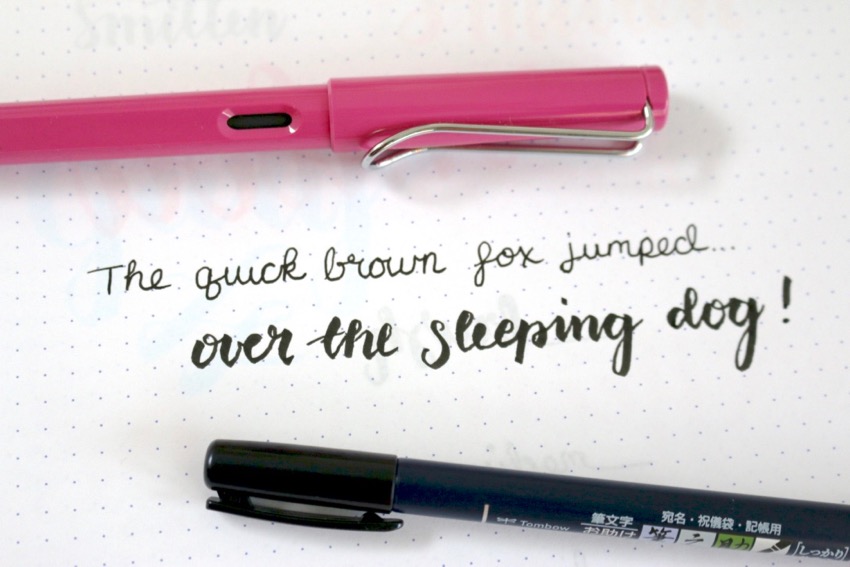 Smitten
The quick brown fox jumped...
over the sleeping dog!
Tombow 筆文字 宛名・祝儀袋・記帳用
お助け
「しっかり」